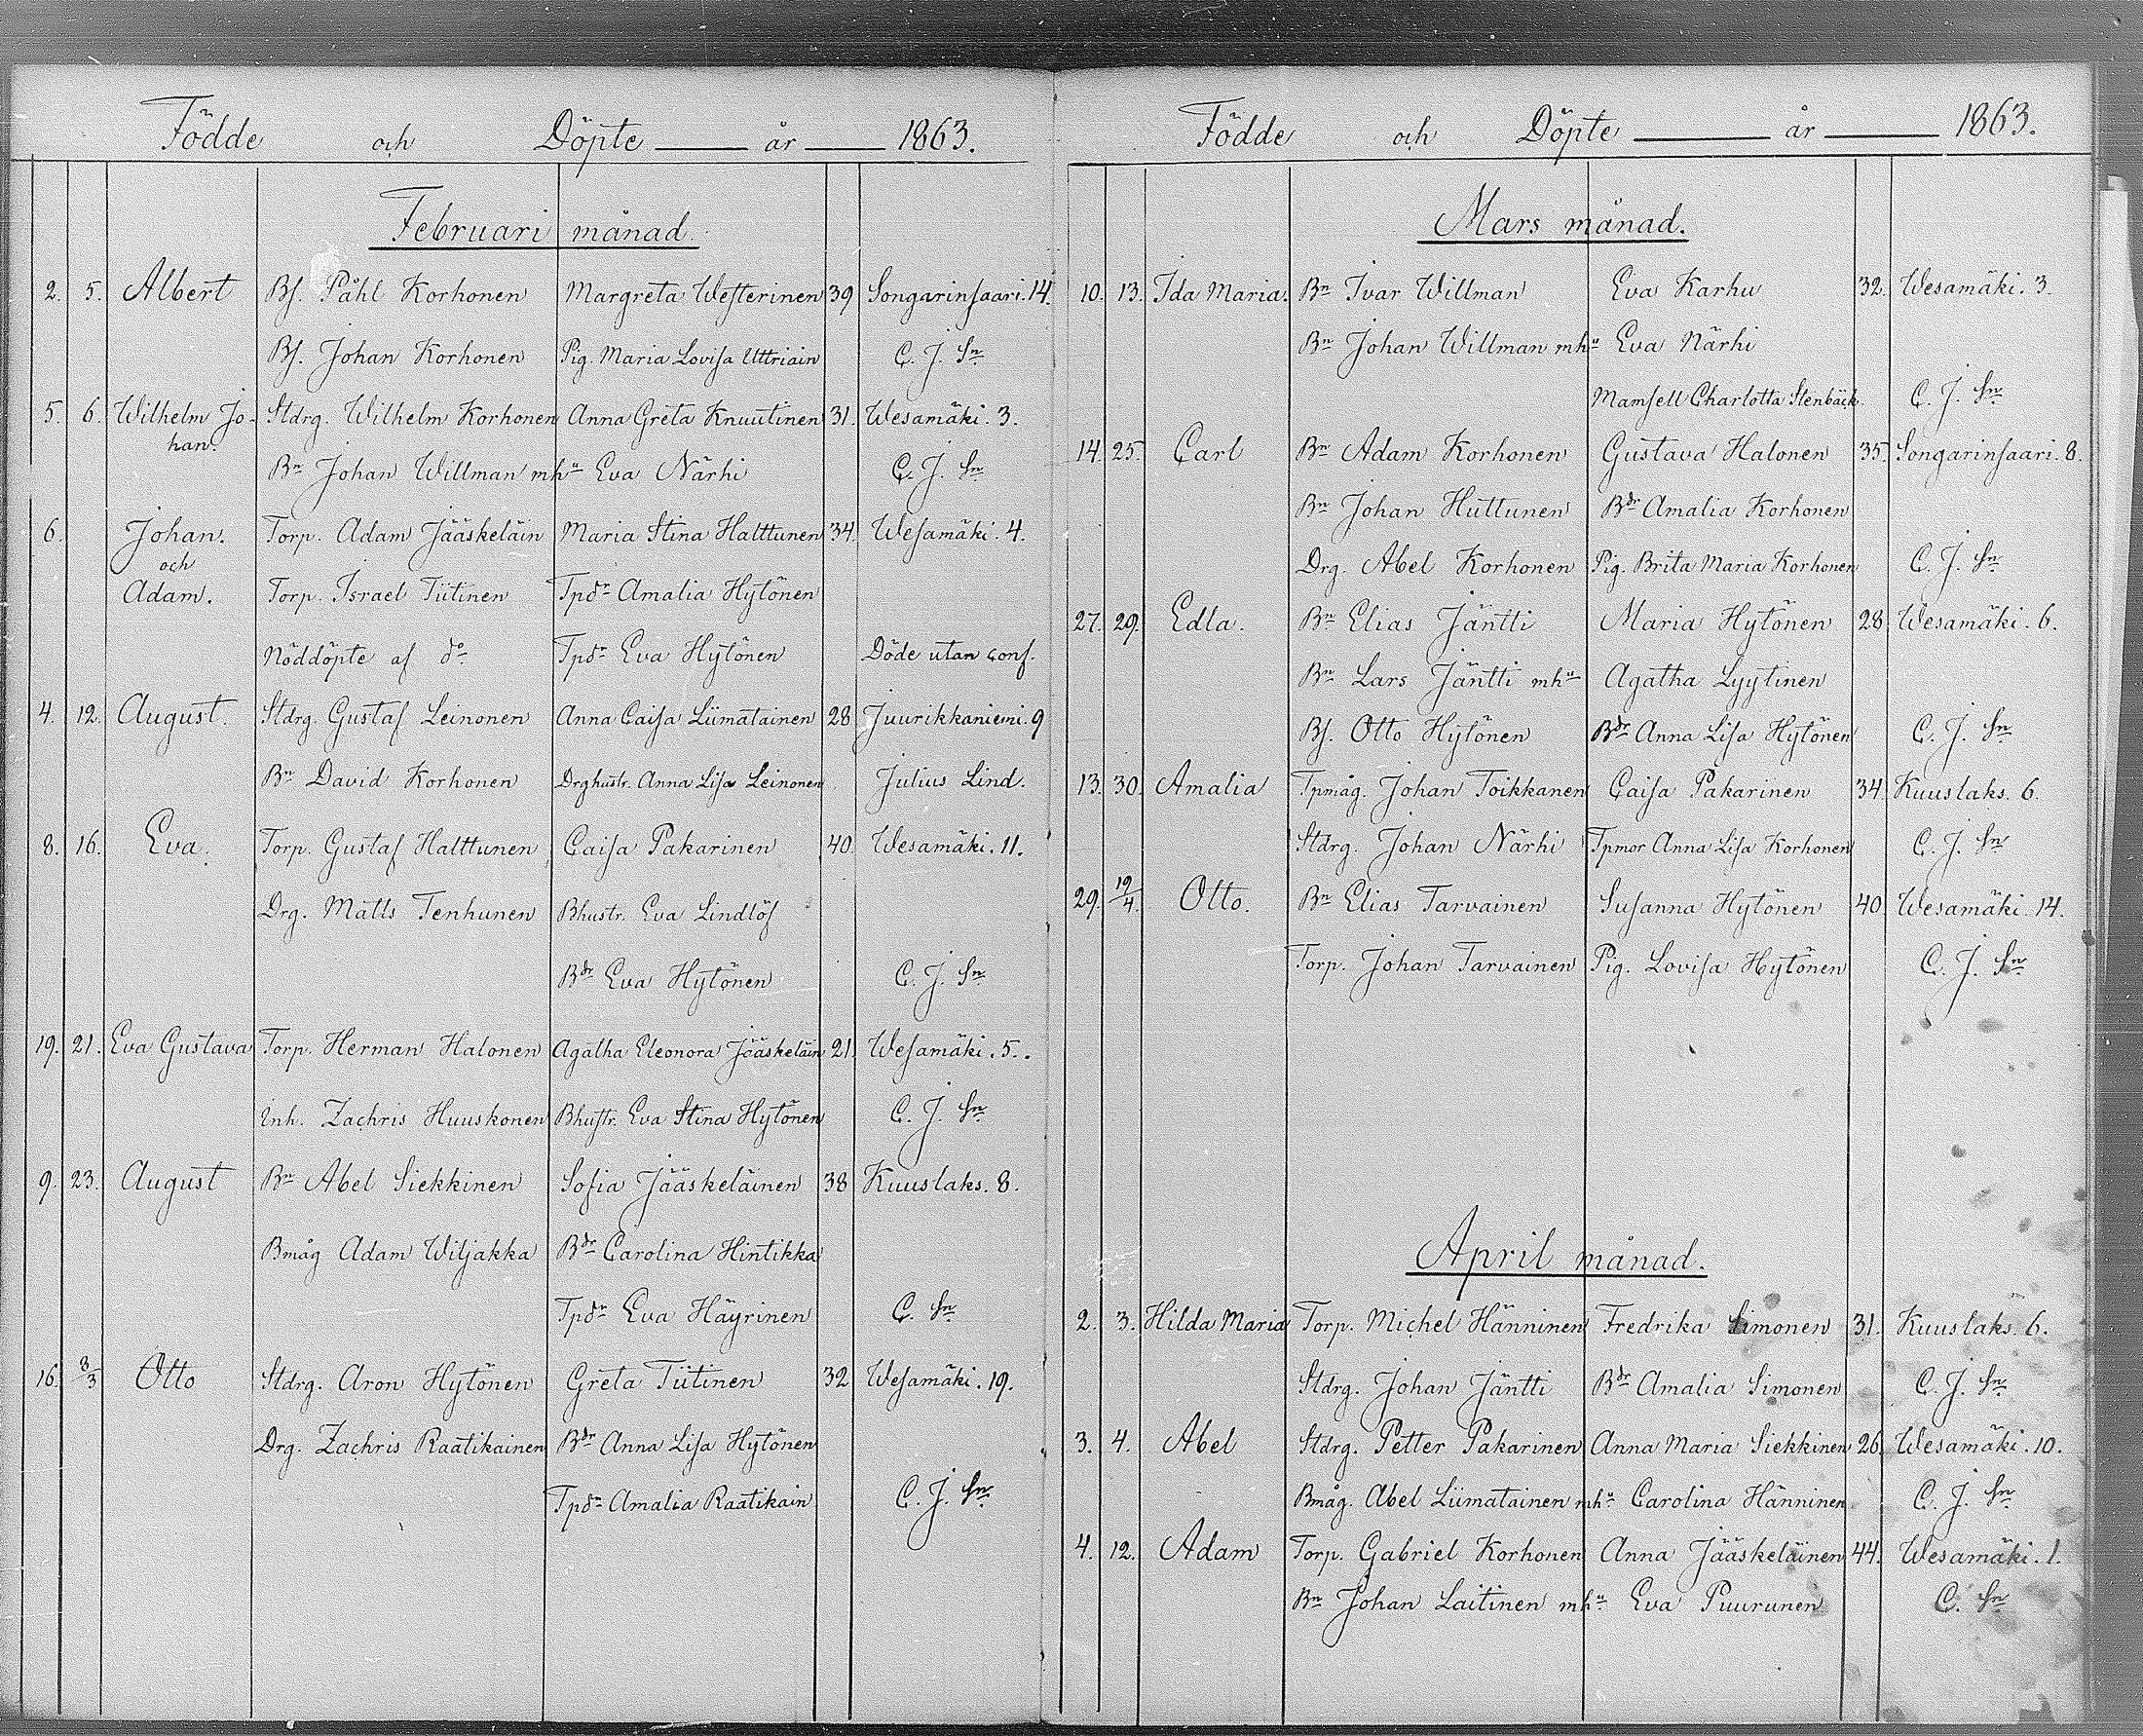 Födde och Döpte år 1863.
Februari månad
2. 5. Albert Bs. Påhl Korhonen Margreta Westerinen 39 Songarinsaari. 14.
Bs. Johan Korhonen Pig. Maria Lovisa Uttriain C. J. Sn
5. 6. Wilhelm Jo- Stdrg. Wilhelm Korhonen Anna Greta Knuutinen 31. Wesamäki. 3.
han.
Bn Johan Willman mhu Eva Närhi C. J. Sn
6. Johan. Torp. Adam Jääskeläin Maria Stina Halttunen 34. Wesamäki. 4.
och
Adam. Torp. Israel Tiitinen Tpdr Amalia Hytönen
Nöddöpte af do. Tpdr Eva Hytönen Döde utan conf.
4. 12. August. Stdrg. Gustaf Leinonen Anna Caisa Liimatainen 28 Juurikkaniemi. 9
Bn David Korhonen Drghustr. Anna Lisa Leinonen Julius Lind.
8. 16. Eva. Torp. Gustaf Halttunen Caisa Pakarinen 40. Wesamäki. 11.
Drg. Matts Tenhunen Bhustr. Eva Lindlöf
Bdr Eva Hytönen C. J. Sn
19. 21. Eva Gustava Torp. Herman Halonen Agatha Eleonora Jääskeläin 21. Wesamäki. 5.
Inh. Zachris Huuskonen Bhustr. Eva Stina Hytönen C. J. Sn
9. 23. August Bn Abel Siekkinen Sofia Jääskeläinen 38 Kuuslaks. 8.
Bmåg Adam Wiljakka Bdr Carolina Hintikka
Tpdr Eva Häyrinen C. Sn
16. 3/3 Otto Stdrg. Aron Hytönen Greta Tiitinen 32 Wesamäki. 19.
Drg. Zachris Raatikainen Bdr Anna Lisa Hytönen
Tpdr Amalia Raatikain C. J. Sn
Födde och Döpte år 1863.
Mars månad.
10. 13. Ida Maria. Bn Ivar Willman Eva Karhu 32. Wesamäki. 3.
Bn Johan Willman mhu Eva Närhi
Mamsell Charlotta Stenbäck. C. J. Sn
14. 25. Carl Bn Adam Korhonen Gustava Halonen 35. Songarinsaari. 8.
Bn Johan Huttunen Bdr Amalia Korhonen
Drg. Abel Korhonen Pig. Brita Maria Korhonen C. J. Sn
27. 29. Edla. Bn Elias Jäntti Maria Hytönen 28 Wesamäki. 6.
Bn Lars Jäntti mhu Agatha Lyytinen
Bs. Otto Hytönen Bdr Anna Lisa Hytönen C. J. Sn
13. 30. Amalia Tpmåg. Johan Toikkanen Caisa Pakarinen 34. Kuuslaks. 6.
Stdrg. Johan Närhi Tpmor Anna Lisa Korhonen C. J. Sn
29. 12/4. Otto. Bn Elias Tarvainen Susanna Hytönen 40. Wesamäki. 14.
Torp. Johan Tarvainen Pig. Lovisa Hytönen C. J. Sn
April månad.
2. 3. Hilda Maria Torp. Michel Hänninen Fredrika Simonen 31. Kuuslaks. 6.
Stdrg. Johan Jäntti Bdr Amalia Simonen C. J. Sn
3. 4. Abel Stdrg. Petter Pakarinen Anna Maria Siekkinen 26. Wesamäki. 10.
Bmåg. Abel Liimatainen mhu Carolina Hänninen C. J. Sn
4. 12. Adam Torp. Gabriel Korhonen Anna Jääskeläinen 44. Wesamäki. 1.
Bn Johan Laitinen mhu Eva Puurunen C. Sn